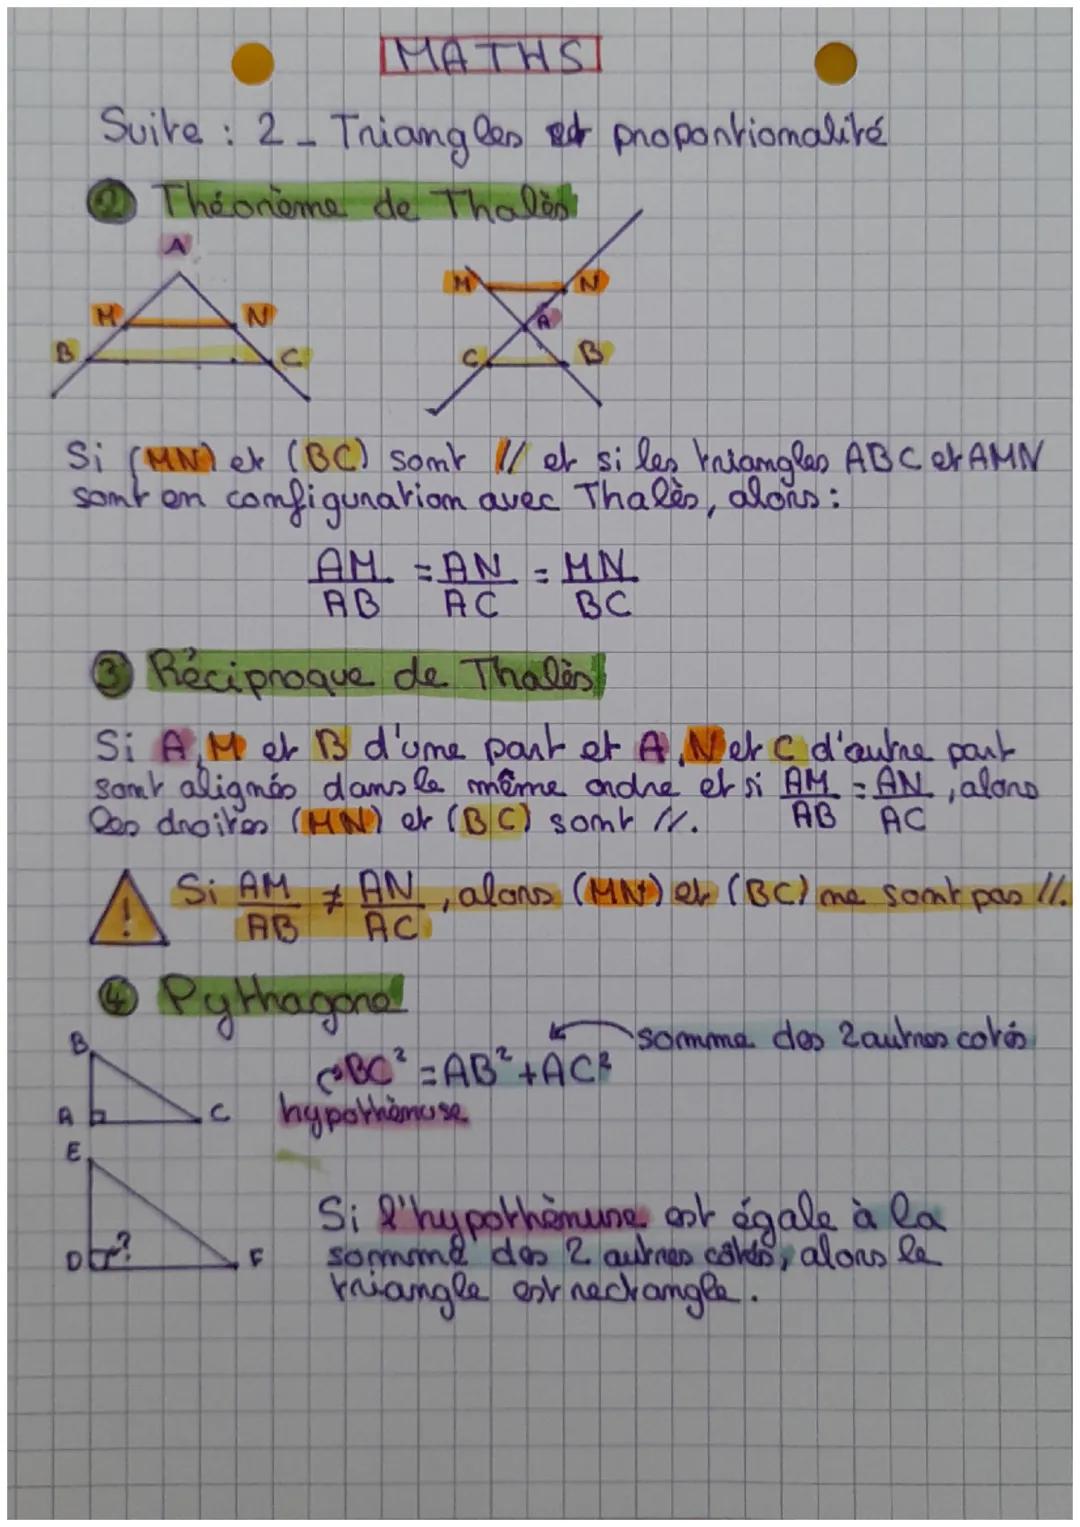 MATHS
Suite : 2 - Triangles et proportionnalité
② Théorème de Thalès
A
M N
B C
M N
A
C B
Si (MN) et (BC) sont // et si les triangles ABC et AMN
sont en configuration avec Thalès, alors :
AM/AB = AN/AC = MN/BC
③ Réciproque de Thalès
Si A, M et B d'une part et A, N et C d'autre part
sont alignés dans le même ordre et si AM/AB = AN/AC, alors
les droites (MN) et (BC) sont //.
! Si AM/AB ≠ AN/AC, alors (MN) et (BC) ne sont pas //.
④ Pythagore
B
A C
somme des 2 autres cotés
BC² = AB² + AC²
hypothénuse
E
D ? F
Si l'hypothénuse est égale à la
somme des 2 autres côtés, alors le
triangle est rectangle.